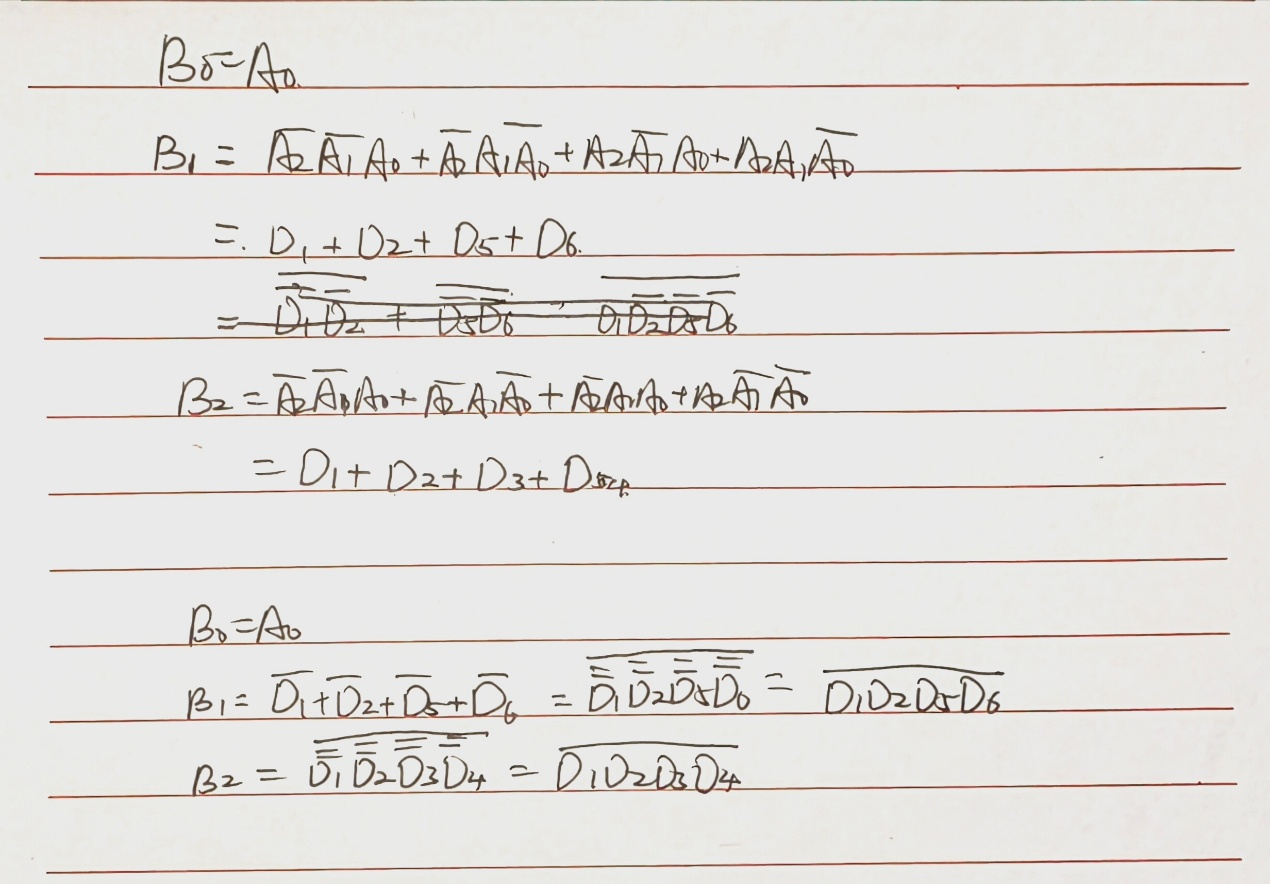 B₀=A₀.
B₁ = A̅₂A̅₁A₀+A̅₂A₁A̅₀+A₂A̅₁A₀+A₂A₁A̅₀
=. D₁+D₂+D₅+D₆.
B₂=A̅₂A̅₁A₀+A̅₂A₁A̅₀+A̅₂A₁A₀+A₂A̅₁A̅₀
= D₁+D₂+D₃+D₄
B₀=A₀
B₁= D̅₁+D̅₂+D̅₅+D̅₆ = \overline{\overline{\overline{D₁}}\ \overline{\overline{D₂}}\ \overline{\overline{D₅}}\ \overline{\overline{D₆}}} = \overline{D₁D₂D₅D₆}
B₂ = \overline{\overline{\overline{D₁}}\ \overline{\overline{D₂}}\ \overline{\overline{D₃}}\ \overline{\overline{D₄}}} = \overline{D₁D₂D₃D₄}